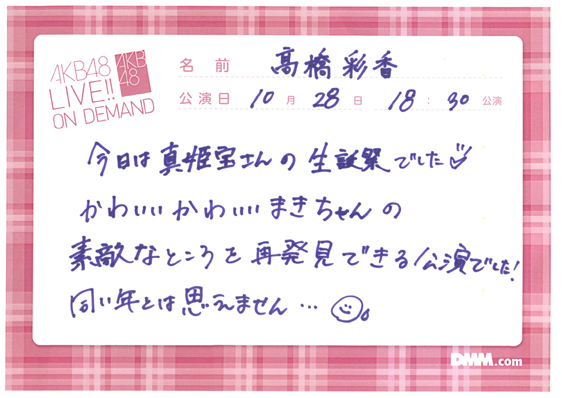 AKB48
LIVE!!
ON DEMAND
AKB
48
名前 髙橋彩香
公演日 10月28日 18:30公演
今日は真姫宝さんの生誕祭でした
かわいいかわいいまきちゃんの
素敵なところを再発見できる公演でした!
同い年とは思えません…
DMM.com